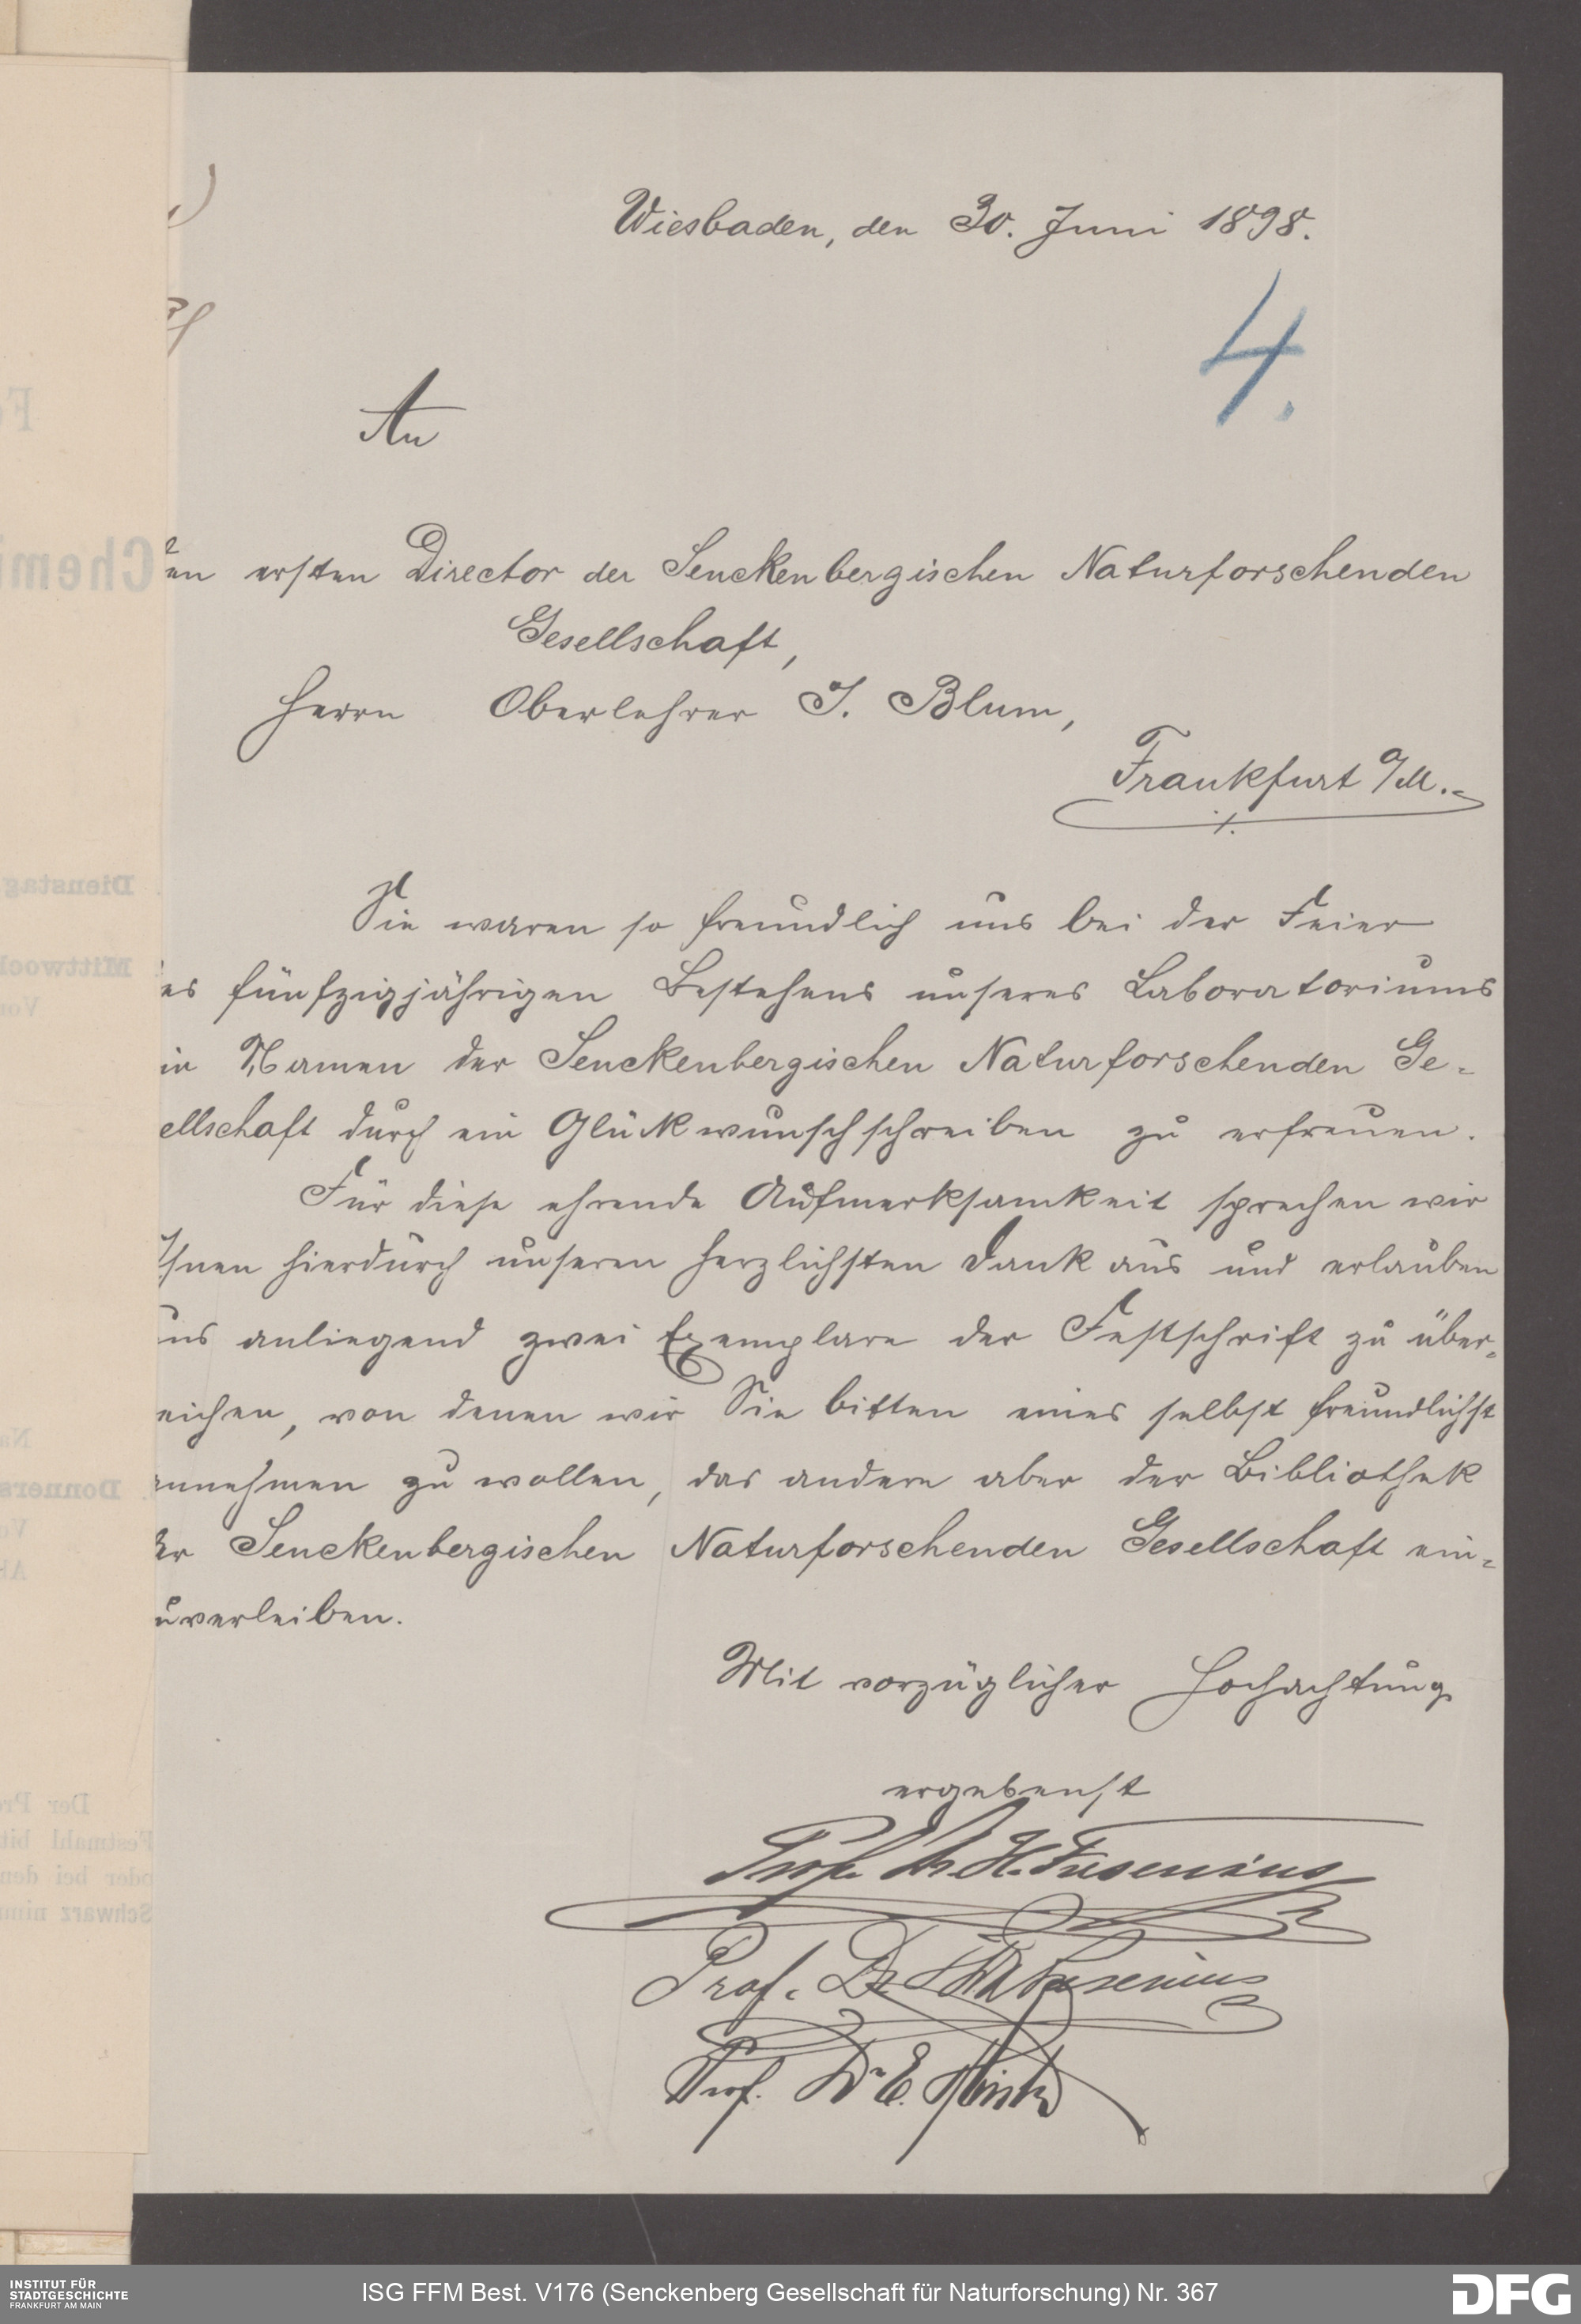 Wiesbaden, den 30. Juni 1898.
4.
An
den ersten Director der Senckenbergischen Naturforschenden
Gesellschaft,
Herrn Oberlehrer J. Blum,
Frankfurt a/M.
Sie waren so freundlich uns bei der Feier
des fünfzigjährigen Bestehens unseres Laboratoriums
im Namen der Senckenbergischen Naturforschenden Ge-
ellschaft durch ein Glückwunschschreiben zu erfreuen.
Für diese ehrende Aufmerksamkeit sprechen wir
Ihnen hierdurch unseren herzlichsten Dank aus und erlauben
uns anliegend zwei Exemplare der Festschrift zu über-
reichen, von denen wir Sie bitten eines selbst freundlichst
annehmen zu wollen, das andere aber der Bibliothek
der Senckenbergischen Naturforschenden Gesellschaft ein-
uverleiben.
Mit vorzüglicher Hochachtung
ergebenst
Prof. Dr. H. Fresenius
Prof. Dr. W. Fresenius
Prof. Dr. E. Hintz
INSTITUT FÜR
STADTGESCHICHTE
FRANKFURT AM MAIN
ISG FFM Best. V176 (Senckenberg Gesellschaft für Naturforschung) Nr. 367
DFG